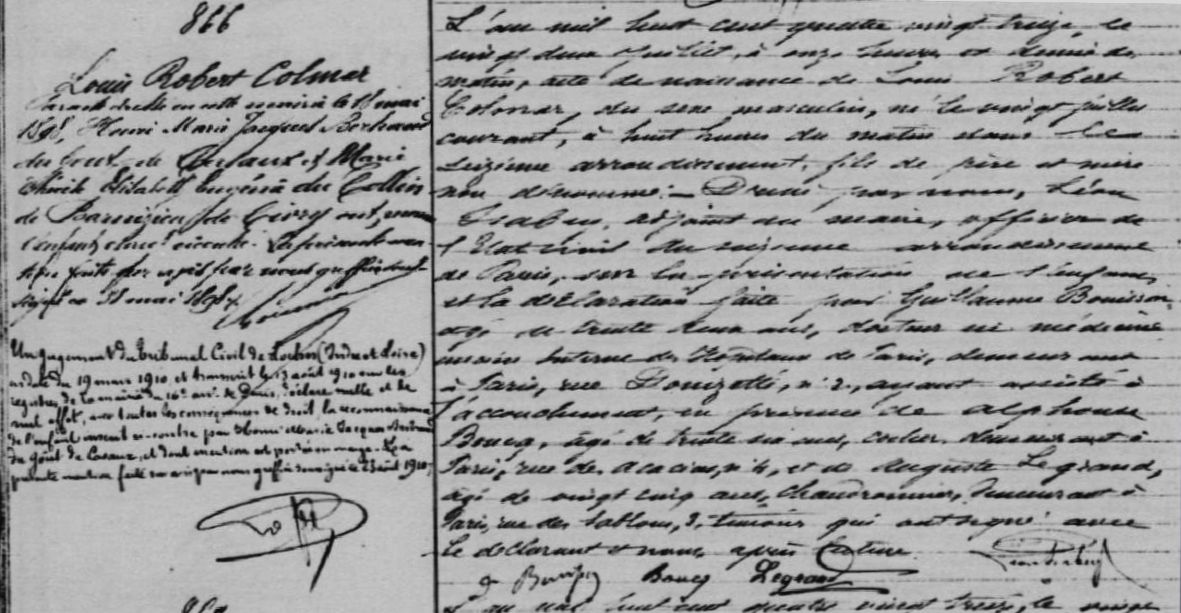 866
Louis Robert Colmar
Par acte dressé en cette mairie le 18 mai
1898, Henri Marie Jacques Bertrand
du Gout de Cazaux et Marie
Elisabeth Eugénie du Collin
de Barizien de
l'enfant
mention faite par nous officier
mai 1898
Un jugement du Tribunal Civil de Loches (Indre et Loire)
en date du 19 mars 1910, et transcrit le 13 août 1910 sur les
registres de la mairie du 16e arrt de Paris, déclare nulle et de
nul effet, avec toutes les conséquences de droit, la reconnaissance
de l'enfant inscrit ci-contre par Henri Marie Jacques Bertrand
du Gout de Cazaux, et dont mention est portée en marge. La
présente mention faite par nous greffier soussigné le août 1910
L'an mil huit cent quatre vingt treize, le
vingt deux Juillet, à onze heures et demie du
matin, acte de naissance de Louis Robert
Colmar, du sexe masculin, né le vingt juillet
courant, à huit heures du matin dans le
seizième arrondissement, fils de père et mère
non dénommés. – Dressé par nous, Léon
adjoint au maire, officier de
l'Etat Civil du seizième arrondissement
de Paris, sur la présentation de l'enfant
et la déclaration faite par Guillaume Bouisson,
agé de trente deux ans, docteur en médecine
ancien Interne des Hôpitaux de Paris, demeurant
à Paris, rue Donizetti, n° 2, ayant assisté à
l'accouchement, en présence de Alphonse
Boucq, âgé de trente six ans, cocher, demeurant à
Paris, rue des Acacias, n° 4, et de Auguste Legrand,
âgé de vingt cinq ans, chaudronnier, demeurant à
Paris, rue des Sablons, 3, témoins qui ont signé avec
le déclarant et nous, après lecture
Boucq Legrand
L'an mil huit cent quatre vingt treize, le